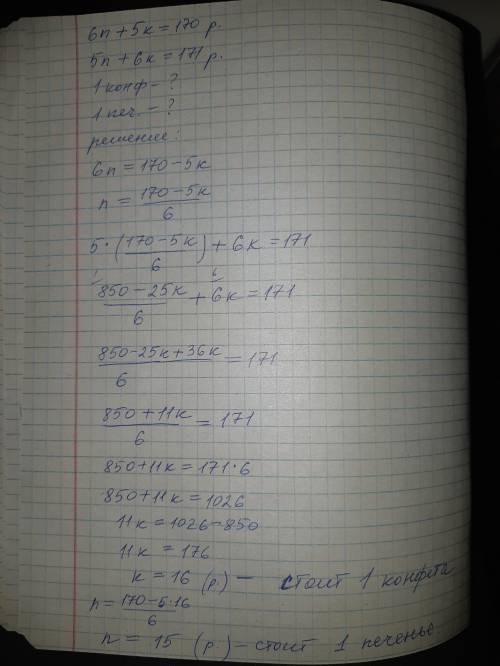 6п + 5к = 170 р.
5п + 6к = 171 р.
1 конф - ?
1 печ. - ?
решение:
6п = 170 - 5к
п = (170 - 5к)/6
5 · ((170 - 5к)/6) + 6к = 171
(850 - 25к)/6 + 6к = 171
(850 - 25к + 36к)/6 = 171
(850 + 11к)/6 = 171
850 + 11к = 171 · 6
850 + 11к = 1026
11к = 1026 - 850
11к = 176
к = 16 (р.) - стоит 1 конфета
п = (170 - 5 · 16)/6
п = 15 (р) - стоит 1 печенье.